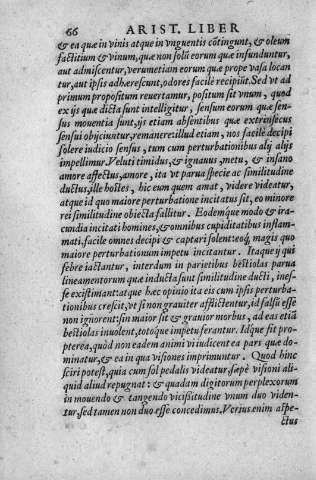 66 ARIST. LIBER
& ea quæ in vinis atque in vnguentis cõtingunt, & oleum
factitium & vinum, quæ non solũ eorum quæ infunduntur,
aut admiscentur, verumetiam eorum quæ prope vasa locan
tur, aut ipsis adhærescunt, odores facilè recipiũt. Sed vt ad
primum propositum reuertamur, positum sit vnum, quod
ex ijs quæ dicta sunt intelligitur, sensum eorum quæ sen-
sus mouentia sunt, ijs etiam absentibus quæ extrinsecus
sensui obijciuntur, remanere: illud etiam, nos facilè decipi
solere iudicio sensus, tum cum perturbationibus alij alijs
impellimur. Veluti timidus, & ignauus, metu, & insano
amore affectus, amore, ita vt parua specie ac similitudine
ductus, ille hostes, hic eum quem amat, videre videatur,
atque id quo maiore perturbatione incitatus sit, eo minore
rei similitudine obiecta fallitur. Eodemque modo & ira-
cundia incitati homines, & omnibus cupiditatibus inflam-
mati, facile omnes decipi & captari solent: eoq́; magis quo
maiore perturbationum impetu incitantur. Itaque y qui
febre iactantur, interdum in parietibus bestiolas parua
lineamentorum quæ inducta sunt similitudine ducti, ines-
se existimant: atque hæc opinio ita eis cum ipsis perturba-
tionibus crescit, vt si non grauiter afflictentur, id falsũ esse
non ignorent: sin maior sit & grauior morbus, ad eas etiã
bestiolas inuolent, totoq́ue impetu ferantur. Idq́ue sit pro-
pterea, quòd non eadem animi vi iudicent ea pars quæ do-
minatur, & ea in qua visiones imprimuntur. Quod hinc
sciri potest, quia cum sol pedalis videatur, sæpè visioni ali-
quid aliud repugnat: & quadam digitorum perplexorum
in mouendo & tangendo vicißitudine vnum duo viden-
tur, sed tamen non duo esse concedimus. Verius enim aspe-
ctus